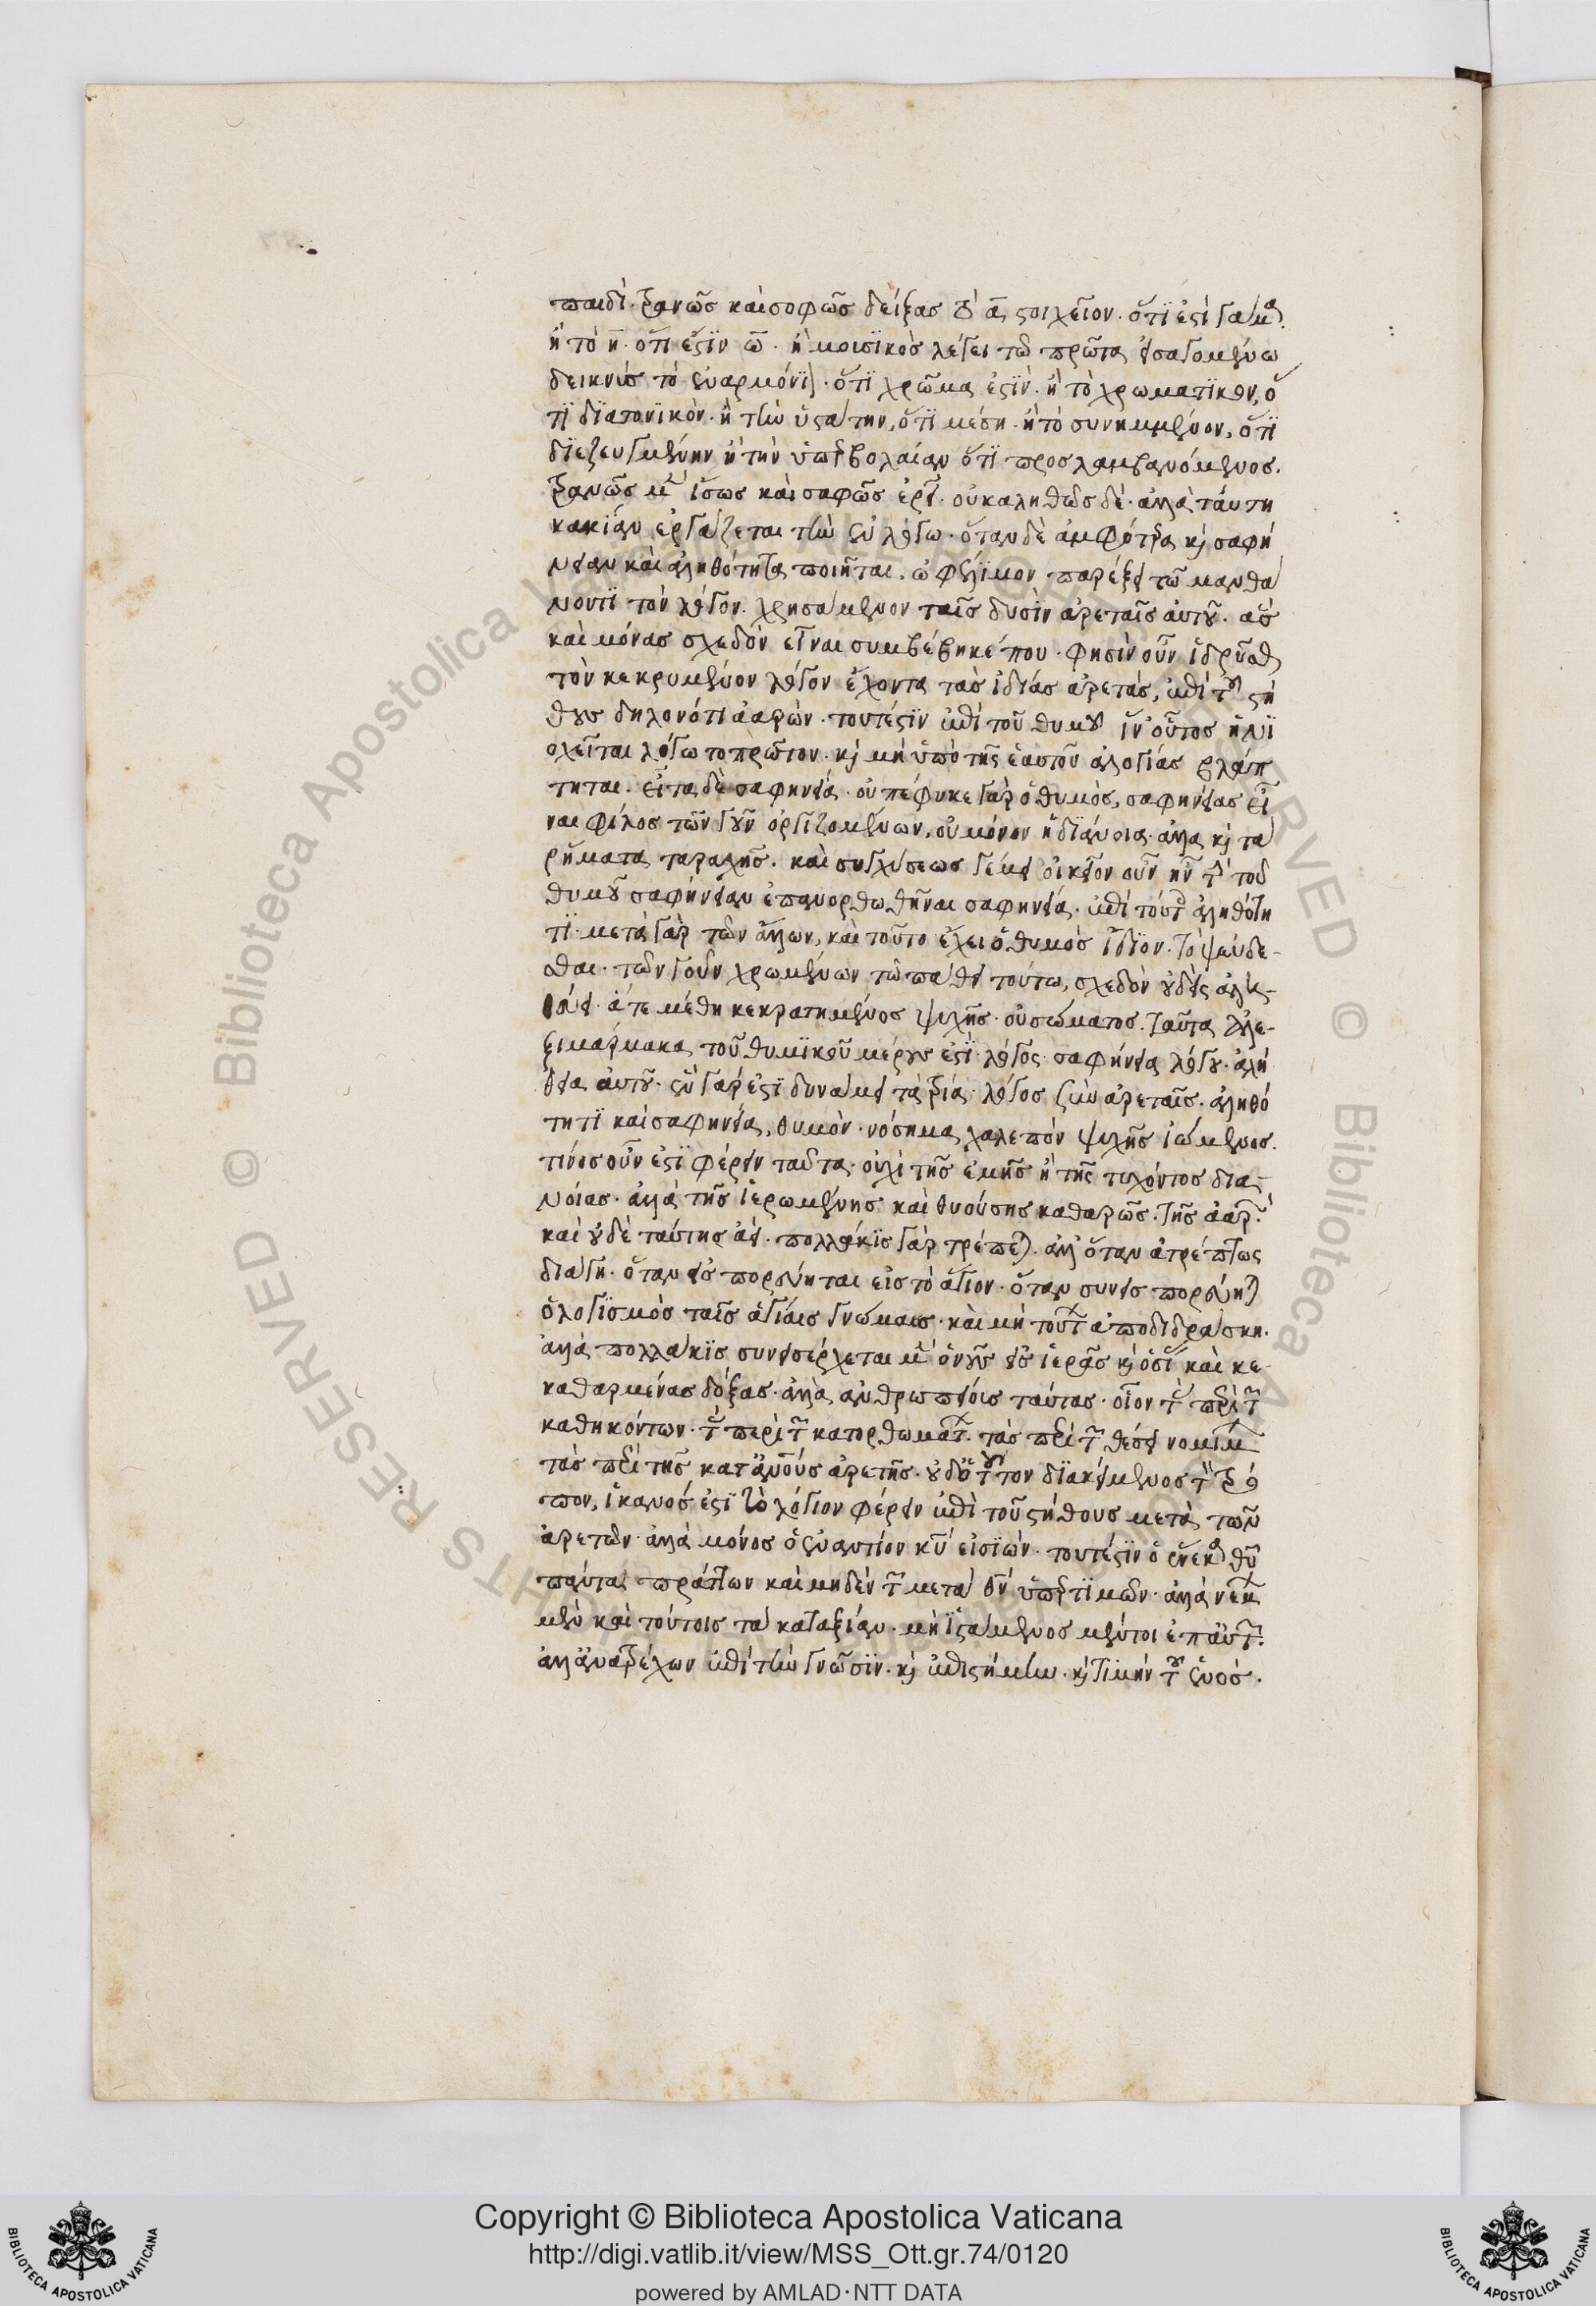 παιδὶ. τρανῶς καὶ σοφῶς δείξας τὸ α̅ στοιχεῖον. ὅτι ἐστὶ γάμμα.
ἢ τὸ η̅. ὅτι ἐστὶν ω̅. ἢ μουσικὸς λέγει τῷ πρῶτα εἰσαγομένω
δεικνὺς τὸ ἐναρμόνιον. ὅτι χρῶμα ἐστὶν. ἢ τὸ χρωματικὸν, ὅ
τι διατονικὸν. ἢ τὴν ὑπάτην, ὅτι μέση. ἢ τὸ συνημμένον, ὅτι
διεζευγμένην ἢ τὴν ὑπερβολαίαν ὅτι προσλαμβανόμενος.
τρανῶς μὲν ἴσως καὶ σαφῶς ἐρεῖ. οὐκ ἀληθῶς δὲ. ἀλλὰ ταύτη
κακίαν ἐργάζεται τὴν ἐν λόγω. ὅταν δὲ ἀμφότερα καὶ σαφή
νειαν καὶ ἀληθότητα ποιῆται. ὠφέλιμον παρέξει τῶ μανθά
νοντι τὸν λόγον. χρησάμενον ταῖς δυσὶν ἀρεταῖς αὐτοῦ. ἃς
καὶ μόνας σχεδὸν εἶναι συμβέβηκέ που. φησὶν οὖν ἱδρῦσθαι
τὸν κεκρυμένον λόγον ἔχοντα τὰς ἰδίας ἀρετάς, ἐπὶ τοῦ στή
θους δηλονότι ἀαρών. τουτέστιν ἐπὶ τοῦ θυμοῦ ἵν' οὗτος ἡνι
οχεῖται λόγω τοπρῶτον. καὶ μὴ ὑπὸ τῆς ἑαυτοῦ ἀλογίας βλάπ
τηται. εἶτα δὲ σαφηνεία. οὐ πέφυκε γὰρ ὁ θυμὸς, σαφηνείας εἶ
ναι φίλος τῶν γοῦν ὀργιζομένων, οὐ μόνον ἡ διάνοια. ἀλλα καὶ τὰ
ρήματα ταραχῆς. καὶ συγχύσεως γέμει οἰκεῖον οὖν ἦν τὴν τοῦ
θυμοῦ σαφήνειαν ἐπανορθωθῆναι σαφηνεία. ἐπὶ τούτοις ἀληθότη
τι. μετὰ γὰρ τῶν ἄλλων, καὶ τοῦτο ἔχει ὁ θυμὸς ἴδιον. τὸ ψεύδε-
σθαι. τῶν γοῦν χρωμένων τῶ πάθει τούτω, σχεδὸν οὐδεὶς ἀλη-
θεύει. ἅτε μέθη κεκρατημένος ψυχῆς. οὐ σώματος. ταῦτα ἀλε-
ξιφάρμακα τοῦ θυμικοῦ μέρους ἐστὶ. λόγος. σαφήνεια λόγου. ἀλή
θεια αὐτοῦ. ἓν γάρ ἐστι δυνάμει τὰ τρία. λόγος σὺν ἀρεταῖς. ἀληθό
τητι καὶ σαφηνεία, θυμὸν. νόσημα χαλεπὸν ψυχῆς ἰώμενος.
τίνος οὖν ἐστὶ φέρειν ταῦτα. οὐχὶ τῆς ἐμῆς ἢ τῆς τυχόντος δια-
νοίας. ἀλλὰ τῆς ἱερωμένης καὶ θυούσης καθαρῶς. τῆς ἀαρών.
καὶ οὐδὲ ταύτης ἀεὶ. πολλάκις γὰρ τρέπεται. ἀλλ' ὅταν ἀτρέπτως
διάγη. ὅταν εἰσπορεύηται εἰς τὸ ἅγιον. ὅταν συνεισπορεύηται
ὁ λογισμὸς ταῖς ἁγίαις γνώμαις. καὶ μὴ τούτων ἀποδιδράσκη.
ἀλλὰ πολλάκις συνεισέρχεται μὲν ὁ νοῦς εἰς ἱερὰς καὶ ὁσίας καὶ κε-
καθαρμένας δόξας. ἀλλὰ ἀνθρωπείοις ταύτας. οἷον τὰς περὶ τῶν
καθηκόντων. τὰς περὶ τῶν κατορθωμάτων. τὰς περὶ τῶν θέσει νομίμων
τὰς περὶ τῆς κατ' ἀνθρώπους ἀρετῆς. οὐδ' ὁ τοῦτον διακείμενος τὸν τρό
πον, ἱκανός ἐστι τὸ λόγιον φέρειν ἐπὶ τοῦ στήθους μετὰ τῶν
ἀρετῶν. ἀλλὰ μόνος ὁ ἐναντίον κυ̅ εἰσιών. τουτέστιν ὁ ἕνεκα θυ̅
πάντα πράττων καὶ μηδὲν τῶν μετὰ θν̅ ὑπερτιμῶν. ἀλλὰ νέμων
μὲν καὶ τούτοις τὰ κατ' ἀξίαν. μὴ ἱστάμενος μέντοι ἐπ' αὐτῶν.
ἀλλ' ἀνατρέχων ἐπὶ τὴν γνῶσιν. καὶ ἐπιστήμην. καὶ τιμὴν τοῦ ἑνός.
Copyright © Biblioteca Apostolica Vaticana
http://digi.vatlib.it/view/MSS_Ott.gr.74/0120
powered by AMLAD·NTT DATA